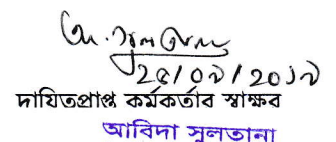 আ. সুলতানা
২৫/০৯/২০১৯
দায়িতপ্রাপ্ত কর্মকর্তাব স্বাক্ষব
আবিদা সুলতানা